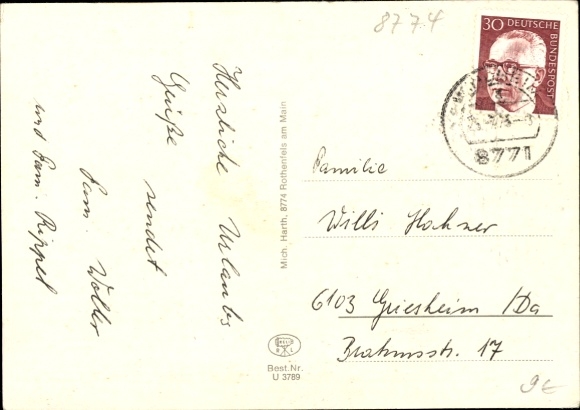 8774
30 DEUTSCHE
BUNDESPOST
8771
Herzliche Urlaubs
Grüße sendet
Fam. Wolder
und Fam. Rippel
Mich. Harth, 8774 Rothenfels am Main
Best.Nr.
U 3789
Familie
Willi Hahner
6103 Griesheim/Da
Brahmsstr. 17
9€